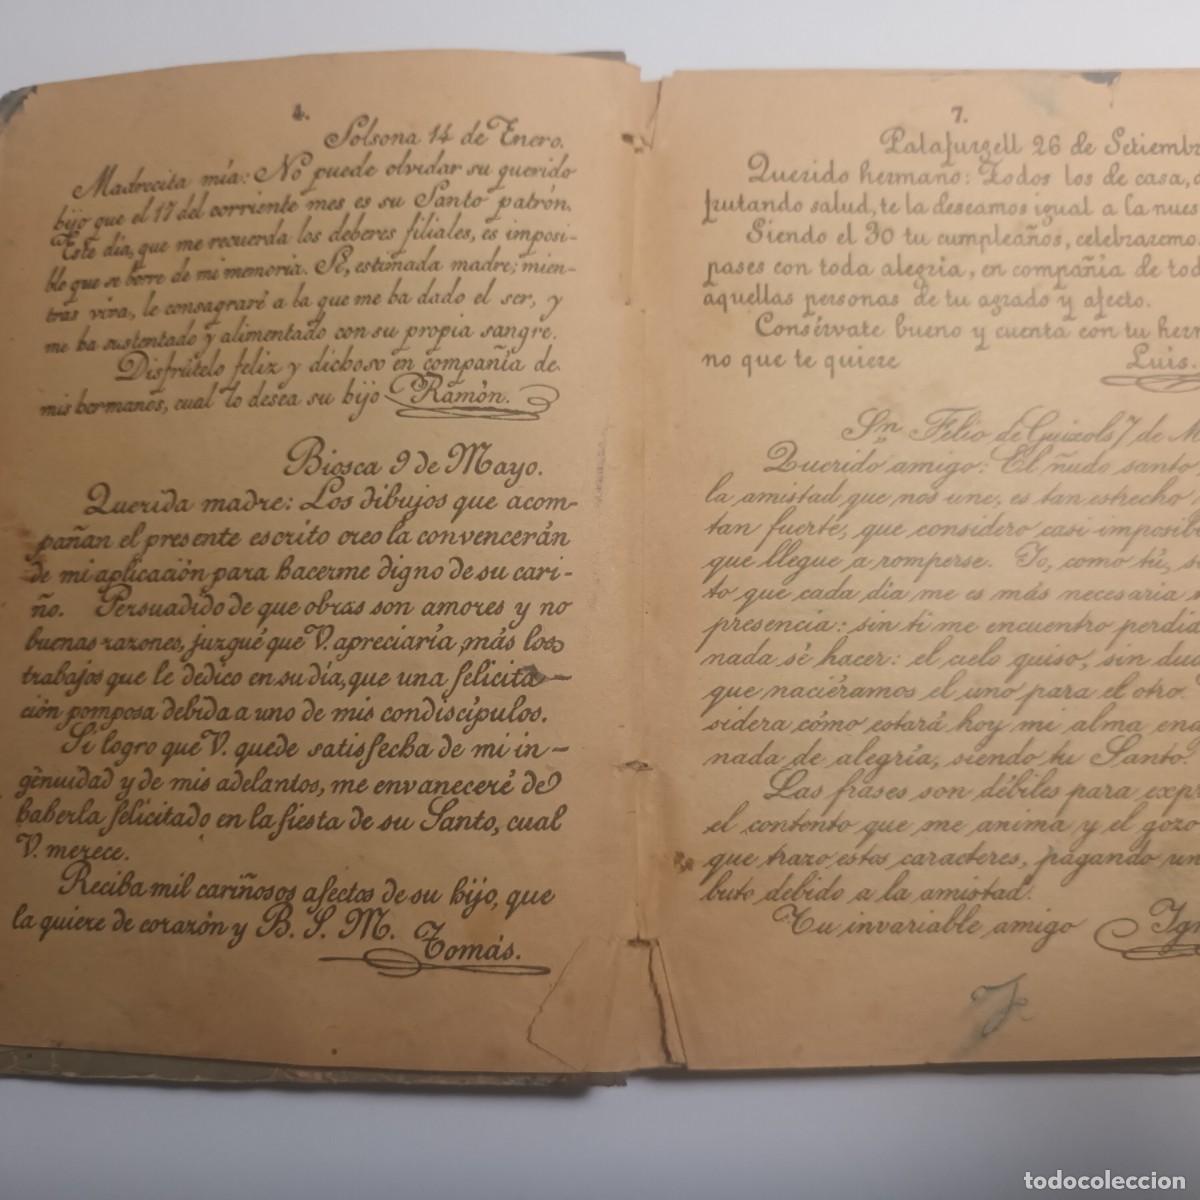 4.
Solsona 14 de Enero.
Madrecita mía: No puede olvidar su querido
hijo que el 17 del corriente mes es su Santo patrón.
Este dia, que me recuerda los deberes filiales, es imposi-
ble que se borre de mi memoria. Sí, estimada madre; mien-
tras viva, le consagraré a la que me ha dado el ser, y
me ha sustentado y alimentado con su propia sangre.
Disfrútelo feliz y dichoso en compañía de
mis hermanos, cual lo desea su hijo Ramón.
Biosca 9 de Mayo.
Querida madre: Los dibujos que acom-
pañan el presente escrito creo la convencerán
de mi aplicación para hacerme digno de su cari-
ño. Persuadido de que obras son amores y no
buenas razones, juzgué que V. apreciaría más los
trabajos que le dedico en su día, que una felicita-
ción pomposa debida a uno de mis condiscípulos.
Si logro que V. quede satisfecha de mi in-
genuidad y de mis adelantos, me envaneceré de
haberla felicitado en la fiesta de su Santo, cual
V. merece.
Reciba mil cariñosos afectos de su hijo, que
la quiere de corazón y B. S. M.
Tomás.
7.
Palafurgell 26 de Setiembr
Querido hermano: Todos los de casa, d
frutando salud, te la deseamos igual a la nues
Siendo el 30 tu cumpleaños, celebraremo
pases con toda alegria, en compañía de tod
aquellas personas de tu agrado y afecto.
Consérvate bueno y cuenta con tu herm
no que te quiere Luis.
Sn Felio de Guixols 7 de M
Querido amigo: El ñudo santo
la amistad que nos une, es tan estrecho
tan fuerte, que considero casi imposib
que llegue a romperse. Yo, como tú, s
to que cada día me es más necesaria
presencia: sin ti me encuentro perdi
nada sé hacer: el cielo quiso, sin du
que naciéramos el uno para el otro.
sidera cómo estará hoy mi alma en
nada de alegría, siendo tu Santo.
Las frases son débiles para expr
el contento que me anima y el gozo
que trazo estos caracteres, pagando un
buto debido a la amistad.
Tu invariable amigo Ign
todocoleccion